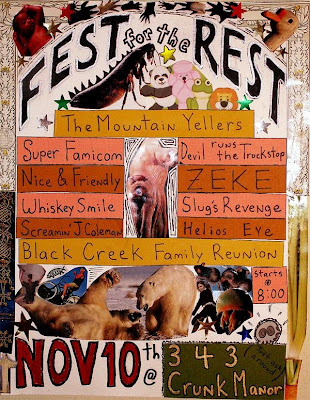 FEST for the REST
The Mountain Yellers
Super Famicom
Devil runs the Truckstop
Nice & Friendly
ZEKE
Whiskey Smile
Slug's Revenge
Screamin J. Coleman
Helios Eye
Black Creek Family Reunion
starts @ 8:00
NOV 10th @
343
Crunk Manor